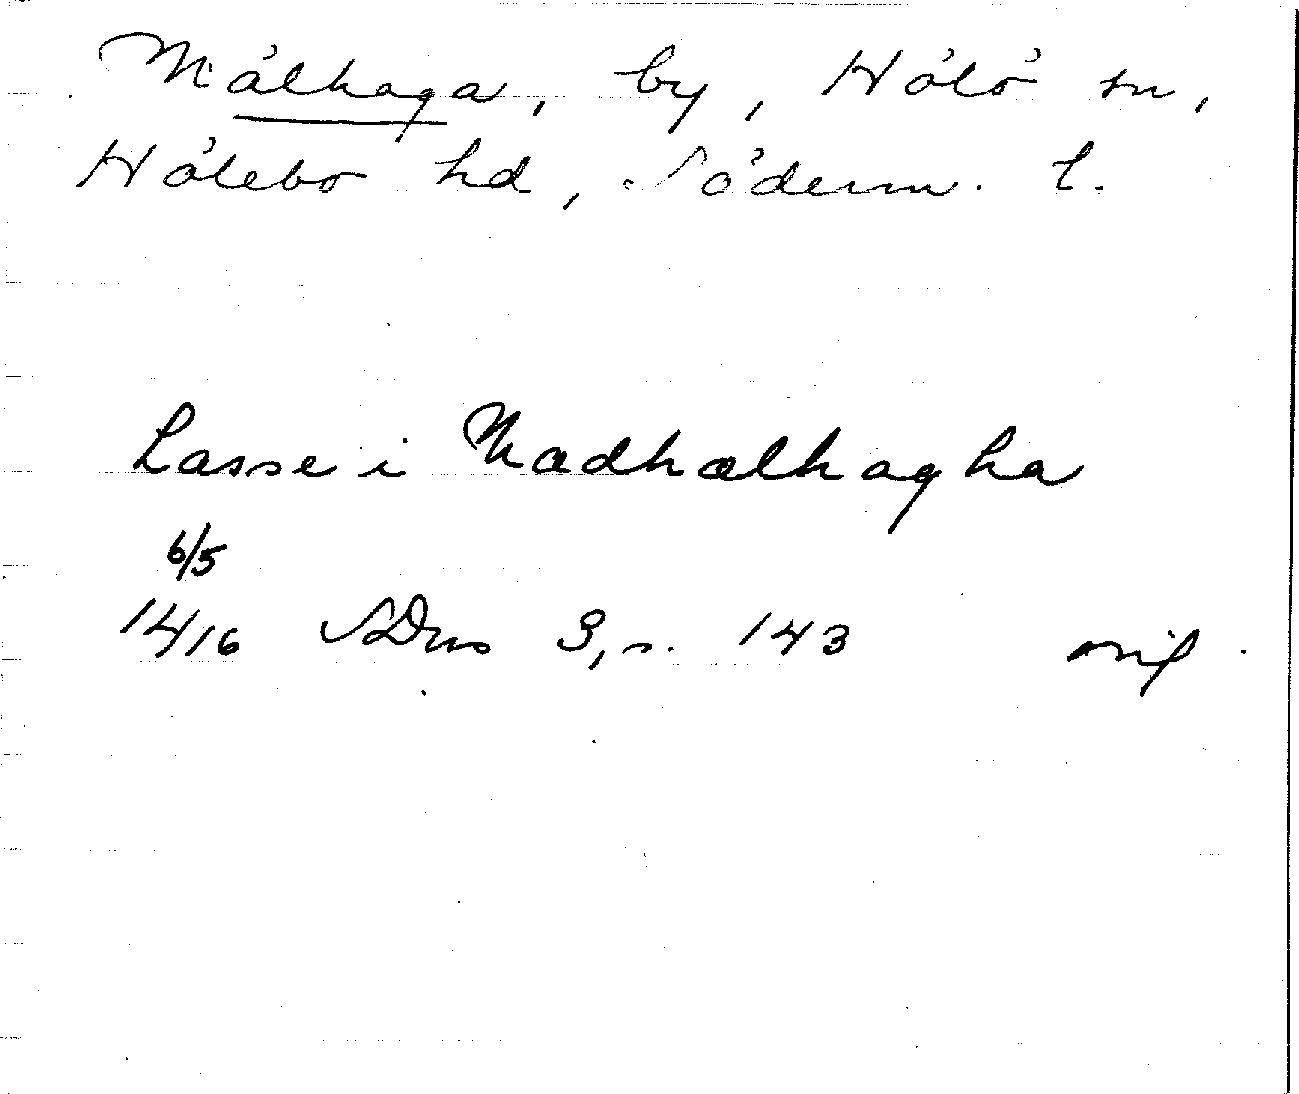 Målhaga, by, Hölö sn,
Hölebo hd, Söderm. l.
Lasse i Madhælhagha
6/5
1416 SDns 3, s. 143 orig.